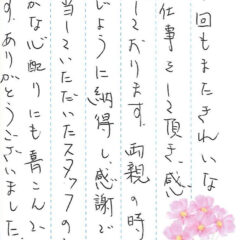 回もまたきれいな
仕事をして頂き、感
しております。両親の時
じように納得し、感謝で
当していただいたスタッフの
かな心配りにも喜こんで
す。ありがとうございました。